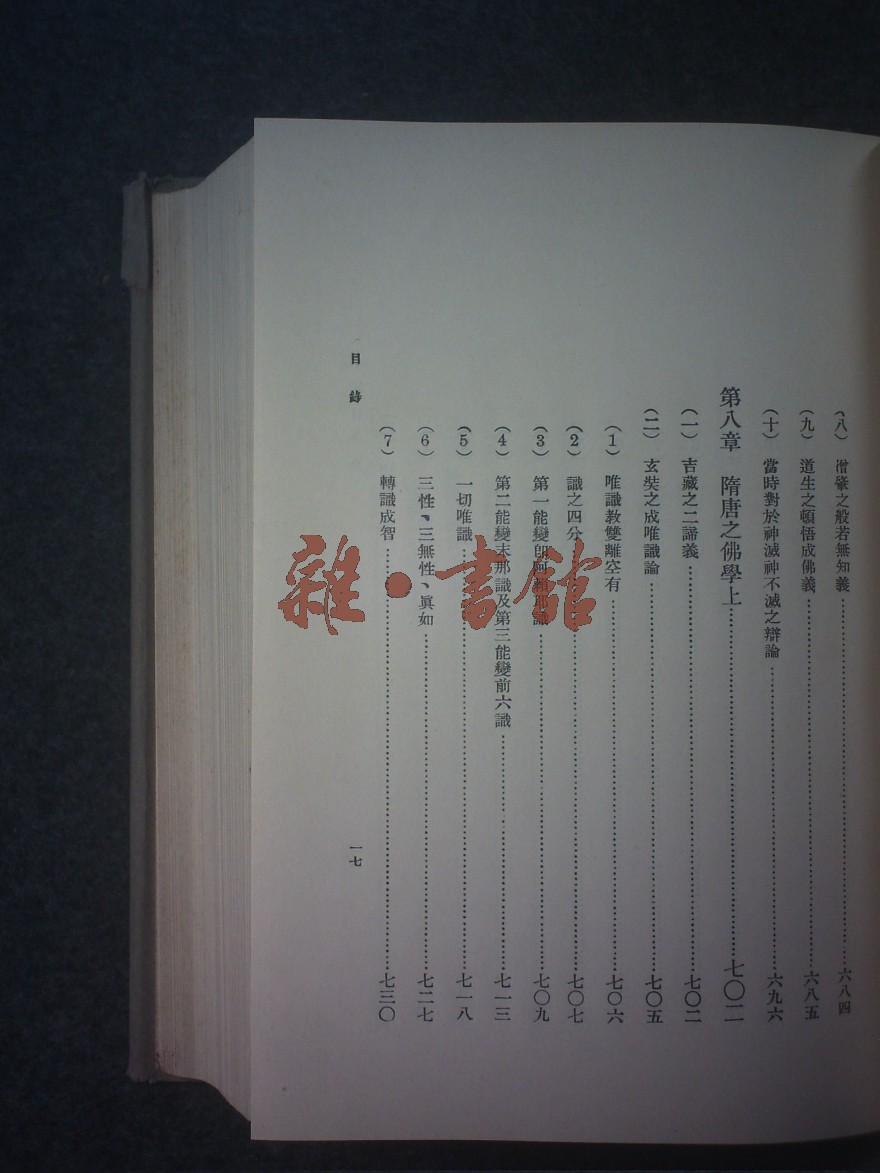 （八） 僧肇之般若無知義……六八四
（九） 道生之頓悟成佛義……六八五
（十） 當時對於神滅神不滅之辯論……六九六
第八章 隋唐之佛學上……七〇二
（一） 吉藏之二諦義……七〇二
（二） 玄奘之成唯識論……七〇五
（1） 唯識教雙離空有……七〇六
（2） 識之四分……七〇七
（3） 第一能變即阿賴耶識……七〇九
（4） 第二能變末那識及第三能變前六識……七一三
（5） 一切唯識……七一八
（6） 三性、三無性、眞如……七二七
（7） 轉識成智……七三〇
目錄
一七
雜·書館